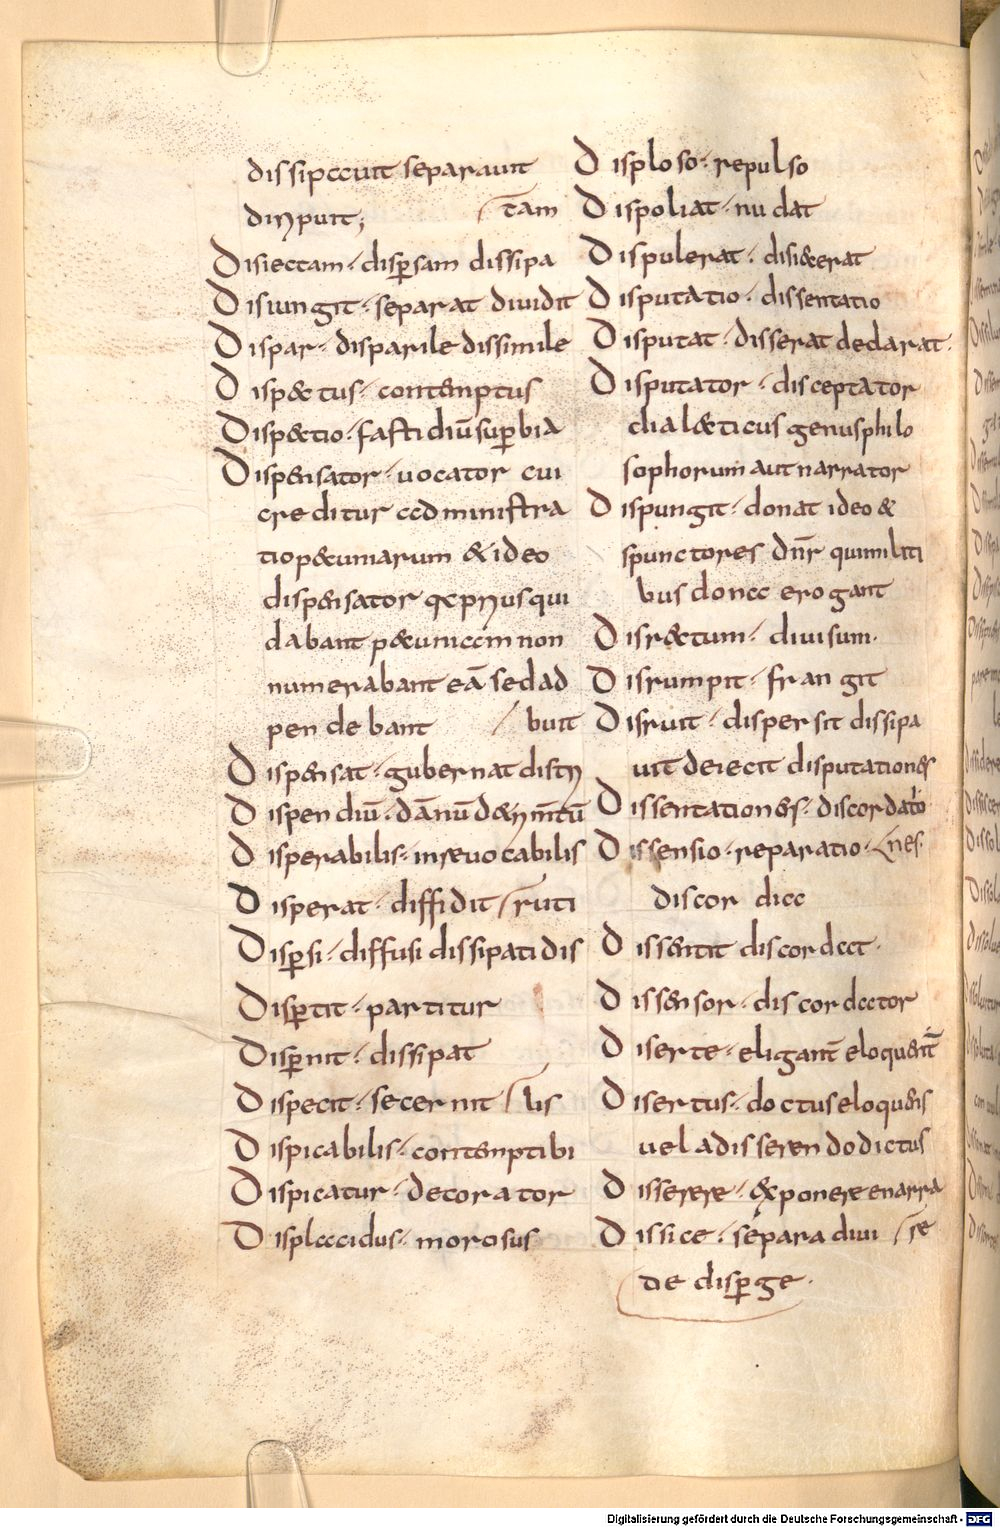 dissipauit separauit
diripuit; / tam
Disiectam · disp̄sam dissipa
Disiungit · separat diuidit
Dispar · disparile dissimile
Disp&tus · contemptus
Disp&tio · fastidiū sup̄bia
Dispensator · uocator cui
creditur adminiſtra
tio p&uniarum & ideo
dispensator qa prius qui
dabant p&uniam non
numerabant eā sed ad
pendebant / buit
Dispensat · gubernat distri
Dispendiū · dānū d&rim̄tū
Disperabilis · inreuocabilis
Disperat · diffidit / ruti
Disp̄si · diffusi dissipati dis
Disp̄tit · partitur
Disp̄nit · dissipat
Dispecit · secernit / lis
Dispicabilis · contemptibi
Dispicatur · decorator
Displacidus · morosus
Disploso · repulso
Dispoliat · nudat
Dispulerat · disi&erat
Disputatio · dissentatio
Disputat · disserat declarat ·
Disputator · disceptator
dial&ticus genus philo
sophorum aut narrator
Dispungit · donat ideo &
spunctores dn̄r qui militi
bus donec erogant
Disr&tum · diuisum ·
Disrumpit · frangit
Disruit · dispersit dissipa
uit deiecit disputationes
Dissentationes · discordatio
Dissensio · reparatio · / nes ·
discordia
Dissentit discordat ·
Dissensor · discordator
Diserte · eligant̄ eloquent̄
Disertus · doctus eloquens
uel adisserendo dictus
Disserere · &ponere enarra
Dissice · separa diui / re
de disp̄ge ·
Digitalisierung gefördert durch die Deutsche Forschungsgemeinschaft - DFG